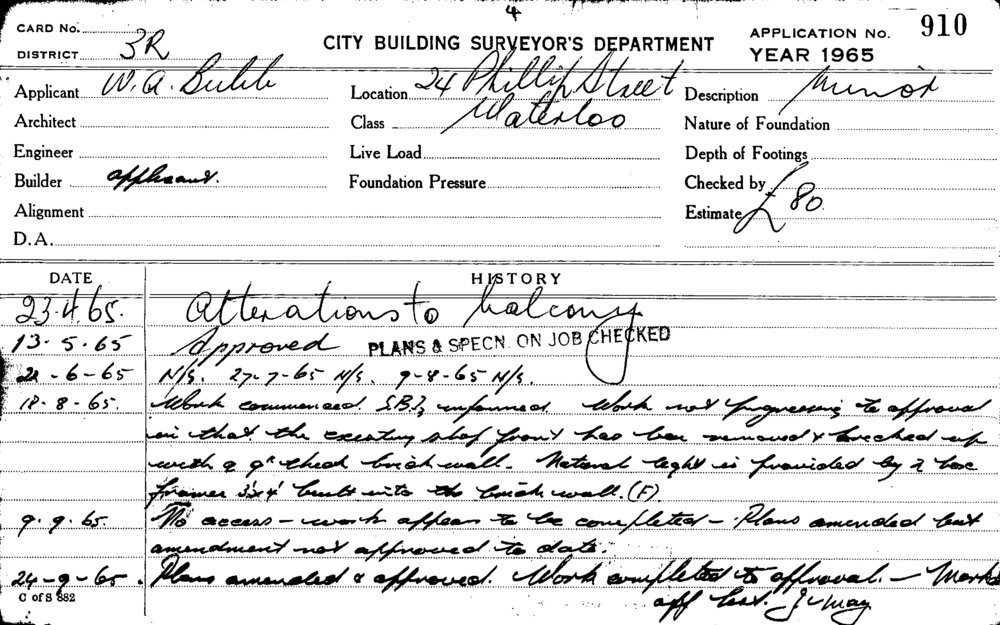 4
CARD No. CITY BUILDING SURVEYOR'S DEPARTMENT APPLICATION No. 910
DISTRICT 3R YEAR 1965
Applicant W. A. Location 24 Phillip Street Description Minor
Architect Class Waterloo Nature of Foundation
Engineer Live Load Depth of Footings
Builder applicant. Foundation Pressure Checked by
Alignment Estimate £80.
D.A.
DATE HISTORY
23.4.65. Alterations to balcony
13.5.65 Approved PLANS & SPECN. ON JOB CHECKED
-6-65 N/S. 27-7-65 N/S. 9-8-65 N/S.
18-8-65. Work commenced. informed. Work not progressing to approval
in that the existing shop front has been removed & bricked up
with a 9" thick brick wall. Natural light is provided by 2 box
frames 3'x4' built into the brick wall. (F).
9.9.65. No access - work appears to be completed - Plans amended but
amendment not approved to date.
24-9-65. Plans amended & approved. Work completed to approval. - Mark
off list. May
C of S 882